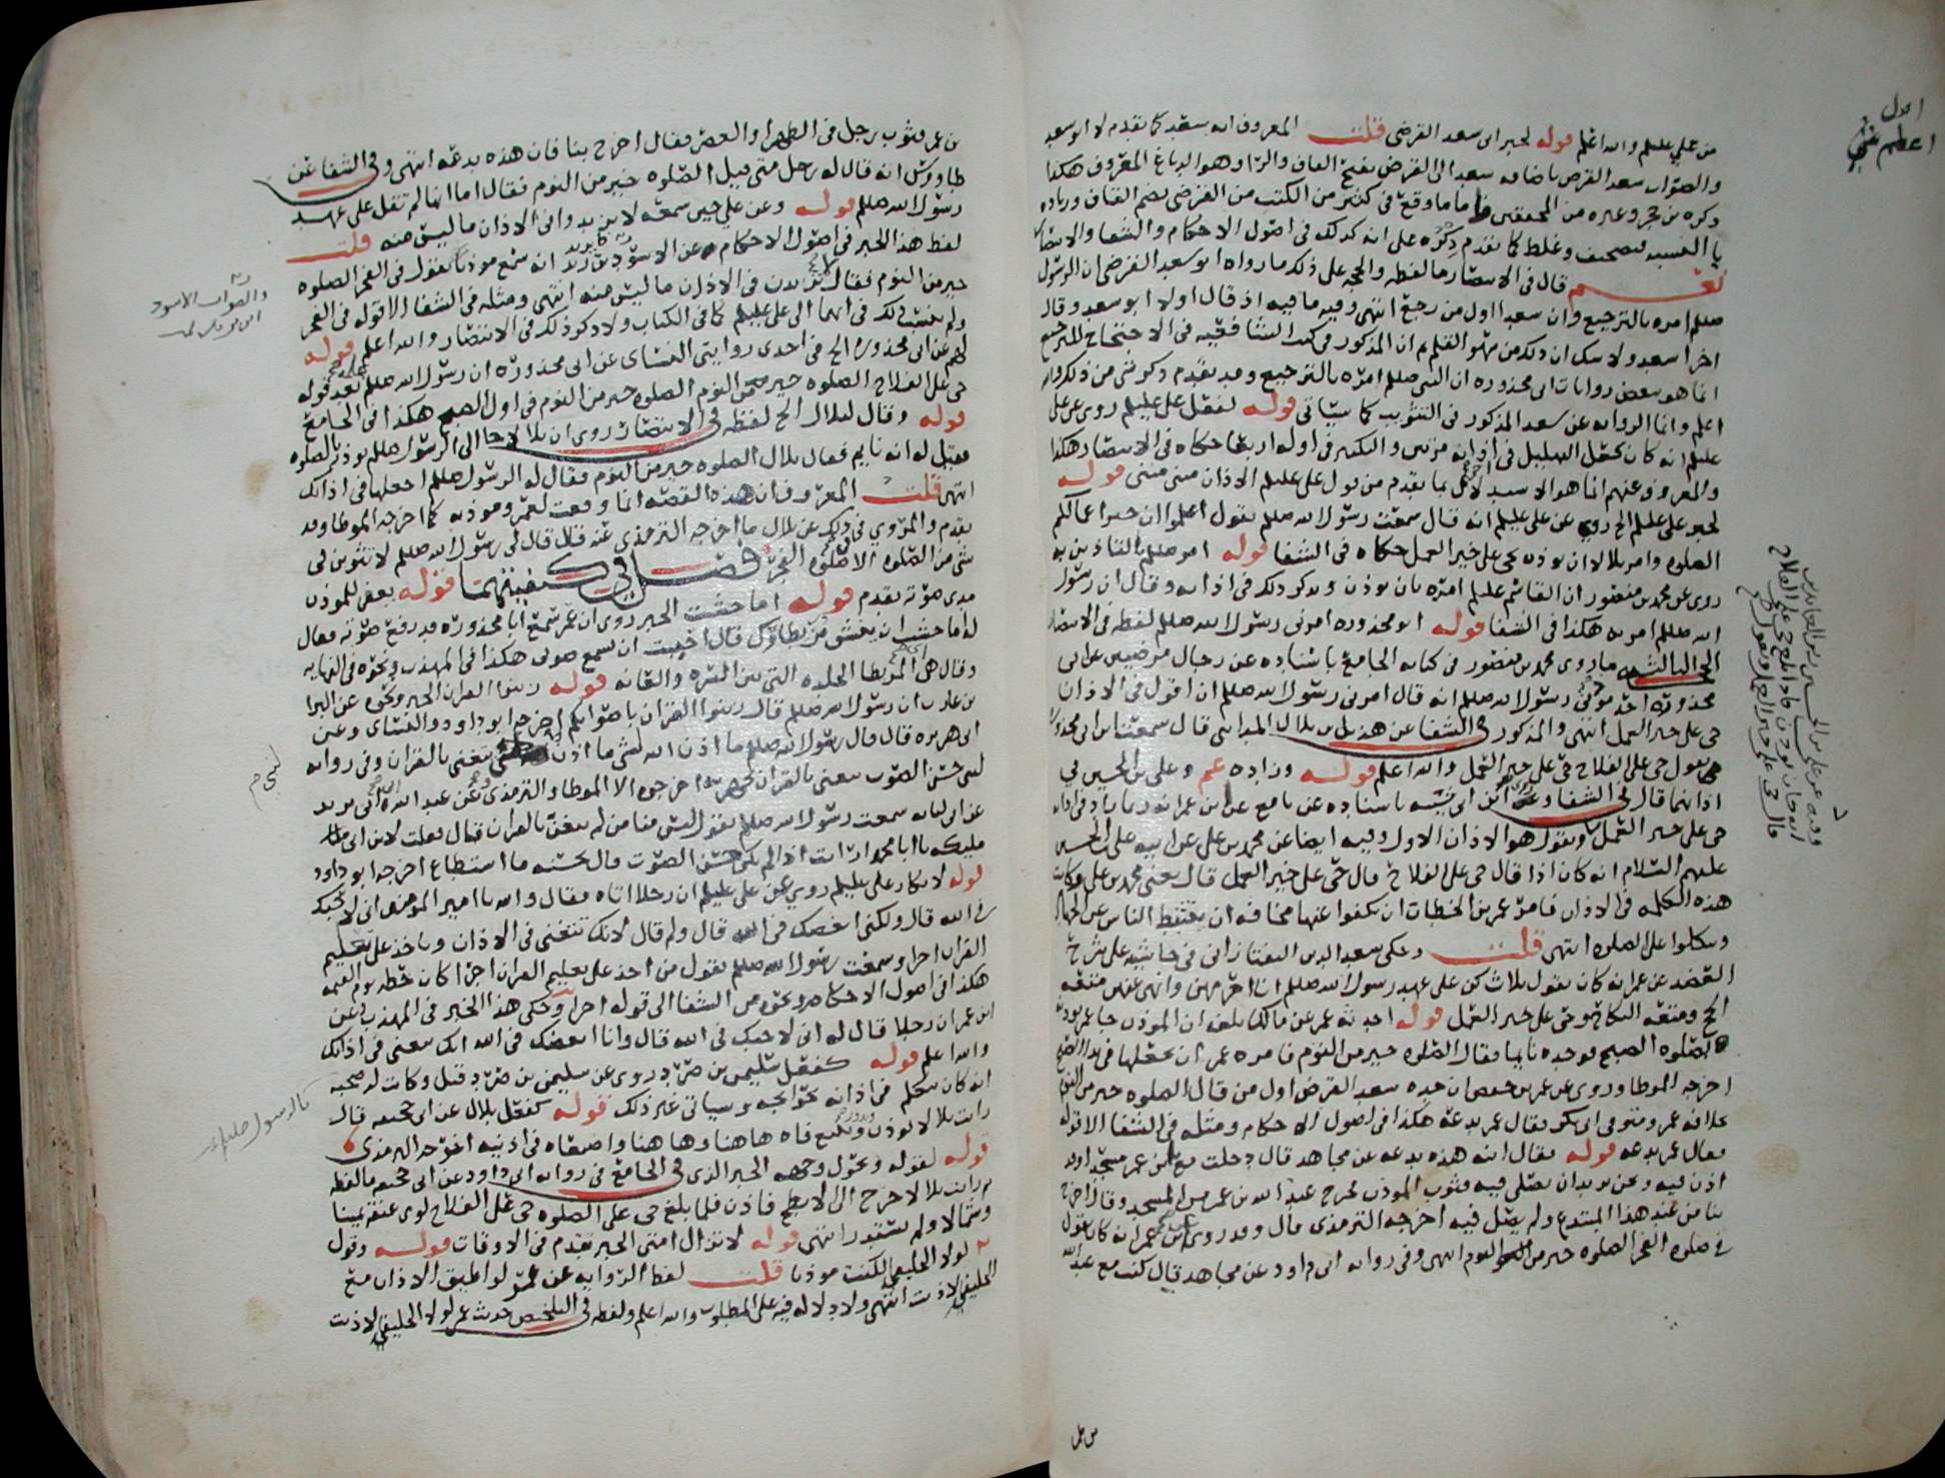 من علي عليلم والله اعلم قوله لخبر ابي سعد القرضي قلت المعروف انه سعد كما تقدم لا ابو سعد
والصواب سعد القرض باضافه سعد الى القرض بفتح القاف والرا وهو الدباغ المعروف هكذا
ذكره بن حجر وغيره من المحققين فاما ما وقع في كثير من الكتب من القرضي بضم القاف وزياده
يا النسبه فتصحيف وغلط كما تقدم ذكره على انه كذلك في اصول الاحكام والشفا والانتصار
نعم قال في الانتصار ما لفظه والحجه على ذلك ما رواه ابو سعد القرضي ان الرسول
صللم امره بالترجيع وان سعدا اول من رجع انتهى وفيه ما فيه اذ قال اولا ابو سعد وقال
اخرا سعد ولا شك ان ذلك من سهو القلم ثم ان المذكور في كتب الشافعيه في الاحتجاج للترجيع
انما هو بعض روايات ابي محذوره ان النبي صللم امره بالترجيع وقد تقدم ذكر شي من ذلك والله
اعلم وانما الروايه عن سعد المذكور في التثويب كما سياتي قوله لفعل علي عليلم روي عن علي
عليلم انه كان يجعل التهليل في اذانه مرتين والتكبير في اوله اربعا حكاه في الانتصار هكذا
والمعروف عنهم انما هو الاستدلال بما تقدم من قول علي عليلم الاذان مثنى مثنى قوله
لخبر علي عليلم الخ روي عن علي عليلم انه قال سمعت رسول الله صللم يقول اعلموا ان خير اعمالكم
الصلوه وامر بلالا ان يوذن بحي على خير العمل حكاه في الشفا قوله امر صللم بالتاذين به
روي عن محمد بن منصور ان القاسم عليلم امره بان يوذن ويذكر ذلك في اذانه وقال ان رسول
الله صللم امر به هكذا في الشفا قوله ابو محذوره امرني رسول الله صللم لفظه في الانتصار
الحجه الثالثه ما روى محمد بن منصور في كتابه الجامع باسناده عن رجال مرضيين عن ابي
محذوره احد موذني رسول الله صللم انه قال امرني رسول الله صللم ان اقول في الاذان
حي على خير العمل انتهى والمذكور في الشفا عن هذيل بن بلال المدايني قال سمعت ابن ابي محذوره
يقول حي على الفلاح حي على خير العمل والله اعلم قوله وزاده عمر وعلي بن الحسين في
اذانهما قال في الشفا وعن ابن ابي شيبه باسناده عن نافع عن ابن عمر انه ربما زاد في اذانه
حي على خير العمل ويقول هو الاذان الاول وفيه ايضا عن محمد بن علي عن ابيه علي بن الحسين
عليهم السلام انه كان اذا قال حي على الفلاح قال حي على خير العمل قال يعني محمد بن علي وكانت
هذه الكلمه في الاذان فامر عمر بن الخطاب ان يكفوا عنها مخافه ان يتثبط الناس عن الجهاد
ويتكلوا على الصلوه انتهى قلت وحكى سعد الدين التفتازاني في حاشيته على شرح
العضد عن عمر انه كان يقول ثلاث كن على عهد رسول الله صللم انا احرمهن وانهى عنهن متعه
الحج ومتعه النكاح وحي على خير العمل قوله احدثه عمر عن مالك بلغه ان الموذن جا عمر يوذنه
لصلوه الصبح فوجده نايما فقال الصلوه خير من النوم فامره عمر ان يجعلها في ندا الصبح
اخرجه الموطا وروي عن عمر بن حفص ان جده سعد القرض اول من قال الصلوه خير من النوم
بخلافه عمر ومتوفى ابي بكر فقال عمر بدعه هكذا في اصول الاحكام ومثله في الشفا الا قوله
فقال عمر بدعه قوله فقال ابنه هذه بدعه عن مجاهد قال دخلت مع ابن عمر مسجدا وقد
اذن فيه ونحن نريد ان نصلي فيه فثوب الموذن فخرج عبد الله بن عمر من المسجد وقال اخرج
بنا من عند هذا المبتدع ولم يصل فيه اخرجه الترمذي قال وقد روي عن ابن عمر انه كان يقول
في صلوه الفجر الصلوه خير من النوم انتهى وفي روايه ابي داود عن مجاهد قال كنت مع عبد الله
بن عمر فثوب رجل في الظهر او العصر فقال اخرج بنا فان هذه بدعه انتهى وفي الشفا عن
طاووس انه قال له رجل متى قيل الصلوه خير من النوم فقال اما انها لم تقل على عهد
رسول الله صللم قوله وعن علي حين سمعه لا تزيدوا في الاذان ما ليس منه قلت
لفظ هذا الخبر في اصول الاحكام عن الاسود بن يزيد انه سمع موذنا يقول في الفجر الصلوه
خير من النوم فقال لا تزيدن في الاذان ما ليس منه انتهى ومثله في الشفا الا قوله في الفجر
ولم ينسب ذلك في ايهما الى علي عليلم كما في الكتاب ولا ذكر ذلك في الانتصار والله اعلم قوله
لهم عن ابي محذوره الخ في احدى روايتي النسائي عن ابي محذوره ان رسول الله صللم علمه بعد قوله
حي على الفلاح الصلوه خير من النوم الصلوه خير من النوم في اول الصبح هكذا في الجامع
قوله وقال لبلال الخ لفظه في الانتصار روي ان بلالا جا الى الرسول صللم يوذنه بالصلوه
فقيل له انه نايم فقال بلال الصلوه خير من النوم فقال له الرسول صللم اجعلها في اذانك
انتهى قلت المعروف ان هذه القصه انما وقعت لعمر وموذنه كما اخرجه الموطا وقد
تقدم والمروي في ذلك عن بلال ما اخرجه الترمذي عنه قال قال لي رسول الله صللم لا تثوبن في
شي من الصلوه الا في صلوه الفجر فصل في كيفيتهما قوله يغفر للموذن
مدى صوته تقدم قوله اما خشيت الخبر روي ان عمر سمع ابا محذوره قد رفع صوته فقال
له اما خشيت ان ينشق مريطاؤك قال احببت ان تسمع صوتي هكذا في المهذب ونحوه في النهايه
وقال هي المريطا الجلده التي بين السره والعانه قوله زينوا القران الخبر ونحوه عن البرا
بن عازب ان رسول الله صللم قال زينوا القران باصواتكم اخرجه ابو داود والنسائي وعن
ابي هريره قال قال رسول الله صللم ما اذن الله لشي ما اذن لنبي يتغنى بالقران وفي روايه
لنبي حسن الصوت يتغنى بالقران يجهر به اخرجوه الا الموطا والترمذي وعن عبد الله بن ابي يزيد
عن ابي لبابه سمعت رسول الله صللم يقول ليس منا من لم يتغن بالقران قال فقلت لابن ابي
مليكه يا ابا محمد ارايت اذا لم يكن حسن الصوت قال يحسنه ما استطاع اخرجه ابو داود
قوله لانكار علي عليلم روي عن علي عليلم ان رجلا اتاه فقال والله يا امير المومنين اني لاحبك
في الله قال ولكني ابغضك في الله قال ولم قال لانك تتغنى في الاذان وتاخذ على تعليم
القران اجرا وسمعت رسول الله صللم يقول من اخذ على تعليم القران اجرا كان حظه يوم القيمه
هكذا في اصول الاحكام ونحوه من الشفا الى قوله اجرا وحكى هذا الخبر في المهذب عن
ابن عمر ان رجلا قال له اني لاحبك في الله قال وانا ابغضك في الله انك تتغنى في اذانك
والله اعلم قوله كفعل سليمن بن صرد روي عن سليمن بن صرد وكانت له صحبه
انه كان يتكلم في اذانه بحوائجه وسياتي غير ذلك قوله كفعل بلال عن ابي جحيفه قال
رايت بلالا يوذن ويدور ويتبع فاه هاهنا وهاهنا واصبعاه في اذنيه اخرجه الترمذي
قوله لقوله وتحول وجهه الخبر الذي في الجامع في روايه ابي داود عن ابي جحيفه ما لفظه
رايت بلالا خرج الى الابطح فاذن فلما بلغ حي على الصلوه حي على الفلاح لوى عنقه يمينا
وشمالا ولم يستدر انتهى قوله لا تزال امتي الخبر تقدم في الاوقات قوله وقول
عمر لولا الخليفي لكنت موذنا قلت لفظ الروايه عن عمر لو اطيق الاذان مع
الخليفي لاذنت انتهى ولا دلاله فيه على المطلوب والله اعلم ولفظه في التلخيص حديث عمر لولا الخليفي لاذنت
والصواب الاسود
لنبي
قال رسول الله صللم